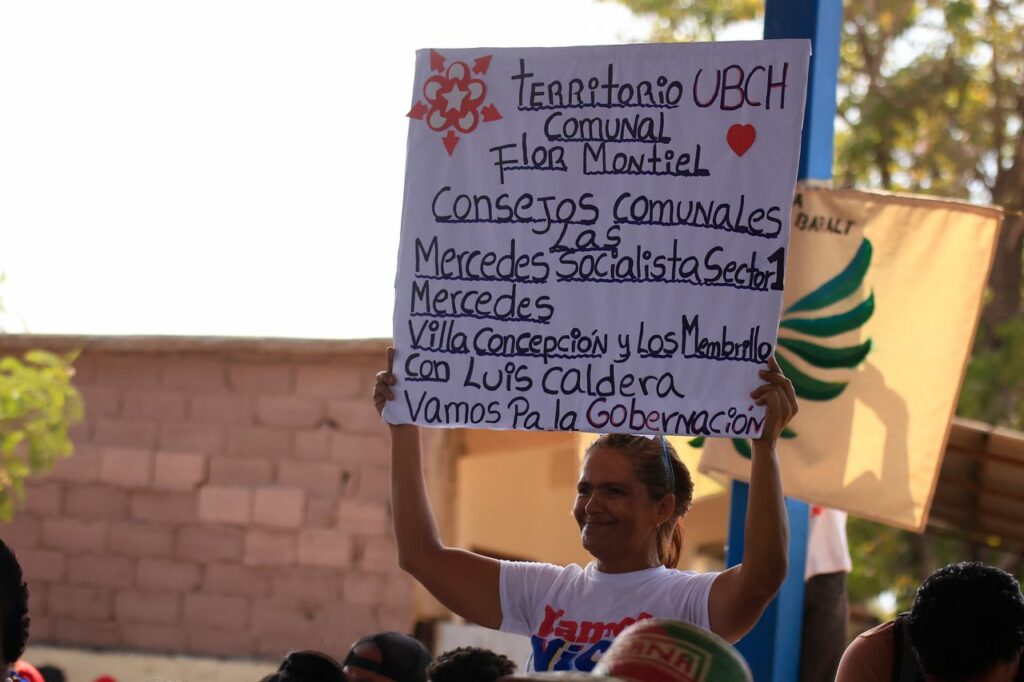 Territorio UBCH
Comunal
Flor Montiel
Consejos comunales
Las
Mercedes Socialista Sector 1
Mercedes
Villa Concepción y Los Membrillo
Con Luis Caldera
Vamos Pa la Gobernación
A
BARALT
Vamos
NA